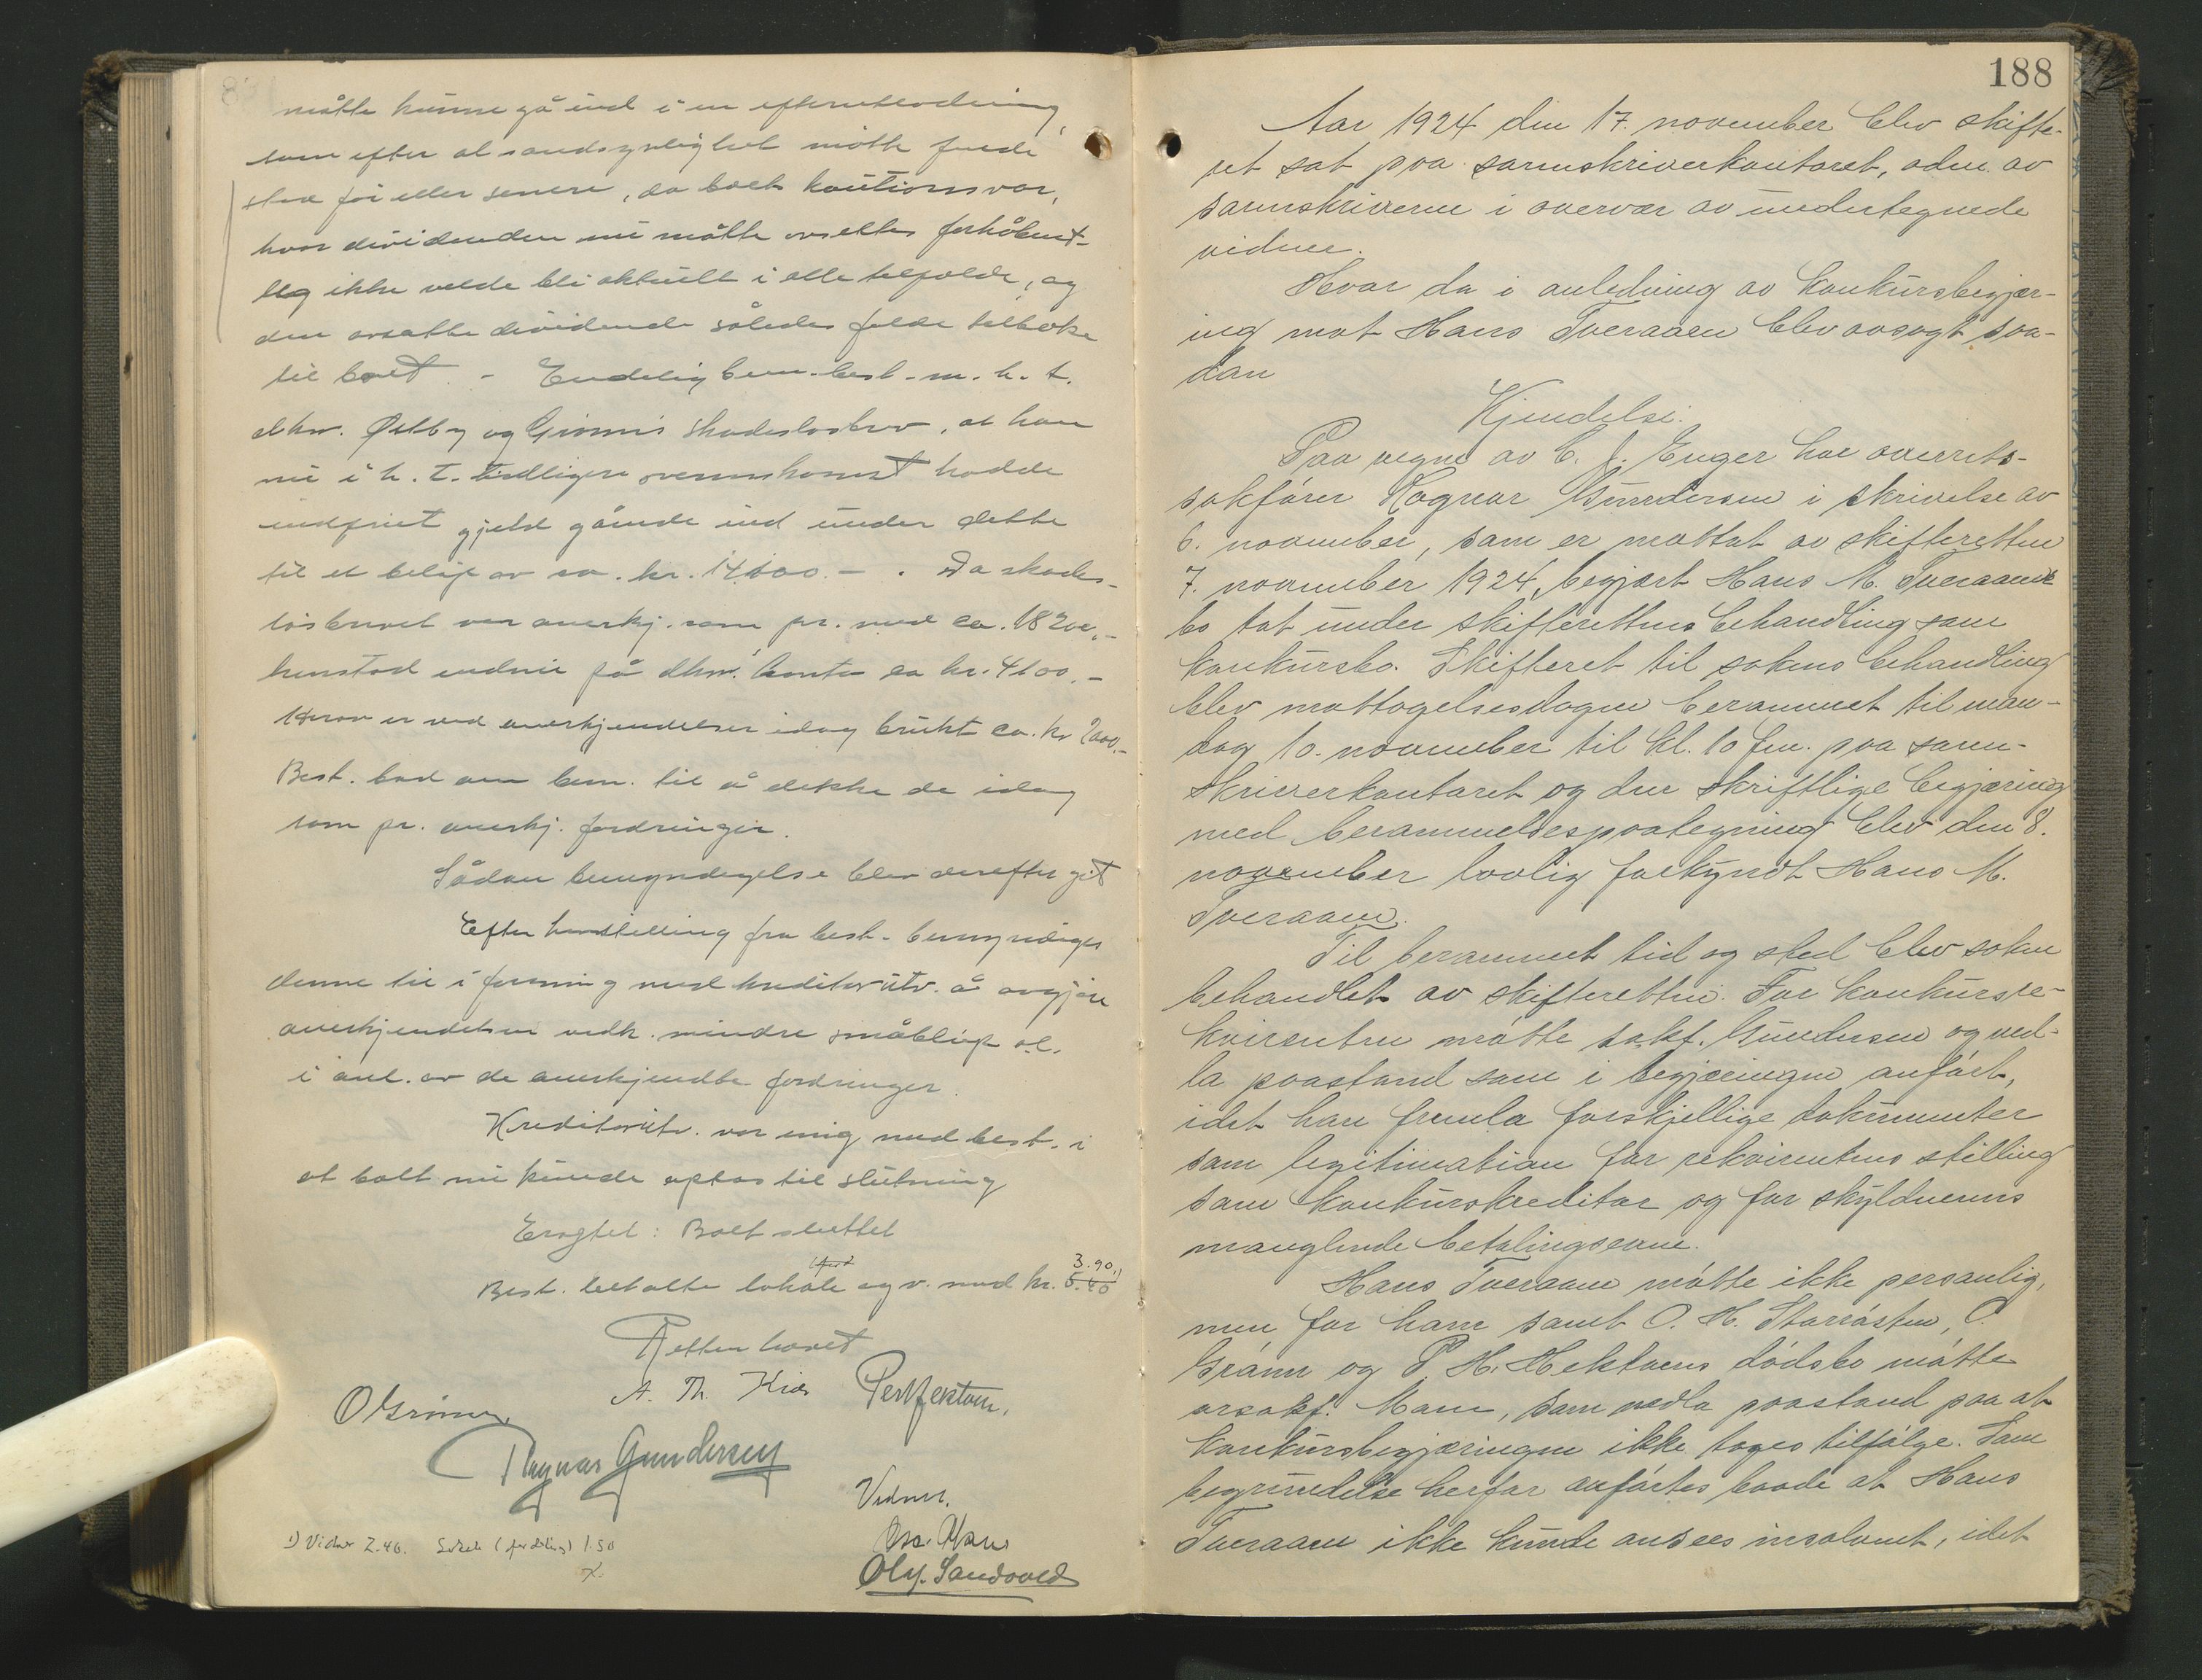 måtte kunne gå ind i en efterutlodning,
som efter al sandsynlighet måtte finde
sted før eller senere, da boets kautionsvar,
hvor dividenden nu måtte avsettes forhåbent-
lig ikke vilde bli aktuelt i alle tilfælde, og
den avsatte dividende således falde tilbake
til boet. - Endelig bem. best. m. h. t.
dhrr. Østby og Grønns skadesløsbrev, at han
nu i h. t. tidligere overenskomst hadde
indfriet gjeld gående ind under dette
til et beløp av ca. kr. 14100.- . Da skades-
løsbrevet var anerkj. som pr. med ca. 18200,-
henstod endnu på dhrr. konto ca kr. 4100.-
Herav er ved anerkjendelser idag brukt ca. kr 2000.-
Best. bad om bem. til å dekke de idag
som pr. anerkj. fordringer.
Sådan bemyndigelse blev derefter git
Efter henstilling fra best. bemyndiges
denne til i forening med kreditorutv. å avgjøre
anerkjendelser vedk. mindre småbeløp ol.
i anl. av de anerkjendte fordringer.
Kreditorutv. var enig med best. i
at boet nu kunde optas til slutning
Eragtet: Boet sluttet
3.90 1)
Best. betalte lokale og v. med kr. 5.40
Retten hævet
A. Th. Kiær Per Hektoen.
O Grønn
Ragnar Gundersen
Vidner.
Osc. Hans
Oly. Sandvold
1) Vidner 2.40. Lokale (fordeling) 1.50
188
Aar 1924 den 17. november blev skifte-
ret sat paa sorenskriverkontoret, adm. av
sorenskriveren i overvær av undertegnede
vidner.
Hvor da i anledning av konkursbegjær-
ing mot Hans Tveraaen blev avsagt saa-
dan
Kjendelse:
Paa vegne av C. J. Enger har overrets-
sakfører Ragnar Gundersen i skrivelse av
6. november, som er mottat av skifteretten
7. november 1924, begjært Hans M. Tveraaens
bo tat under skifterettens behandling som
konkursbo. Skifteret til sakens behandling
blev mottagelsesdagen berammet til man-
dag 10. november til kl. 10 fm. paa soren-
skriverkontoret og den skriftlige begjæring
med berammelsespaategning blev den 8.
november lovlig forkyndt Hans M.
Tveraaen.
Til berammet tid og sted blev saken
behandlet av skifteretten. For konkursre-
kvirenten møtte sakf. Gundersen og ned-
la paastand som i begjæringen anført,
idet han fremla forskjellige dokumenter
som legitimation for rekvirentens stilling
som konkurskreditor og for skyldnerens
manglende betalingsevne.
Hans Tveraaen møtte ikke personlig,
men for ham samt O. H. Storrøsten, O.
Grønn og P. H. Hektoens dødsbo møtte
orsakf. Moen, som nedla paastand paa at
konkursbegjæringen ikke toges tilfølge. Som
begrundelse herfor anførtes baade at Hans
Tveraaen ikke kunde ansees insolvent, idet